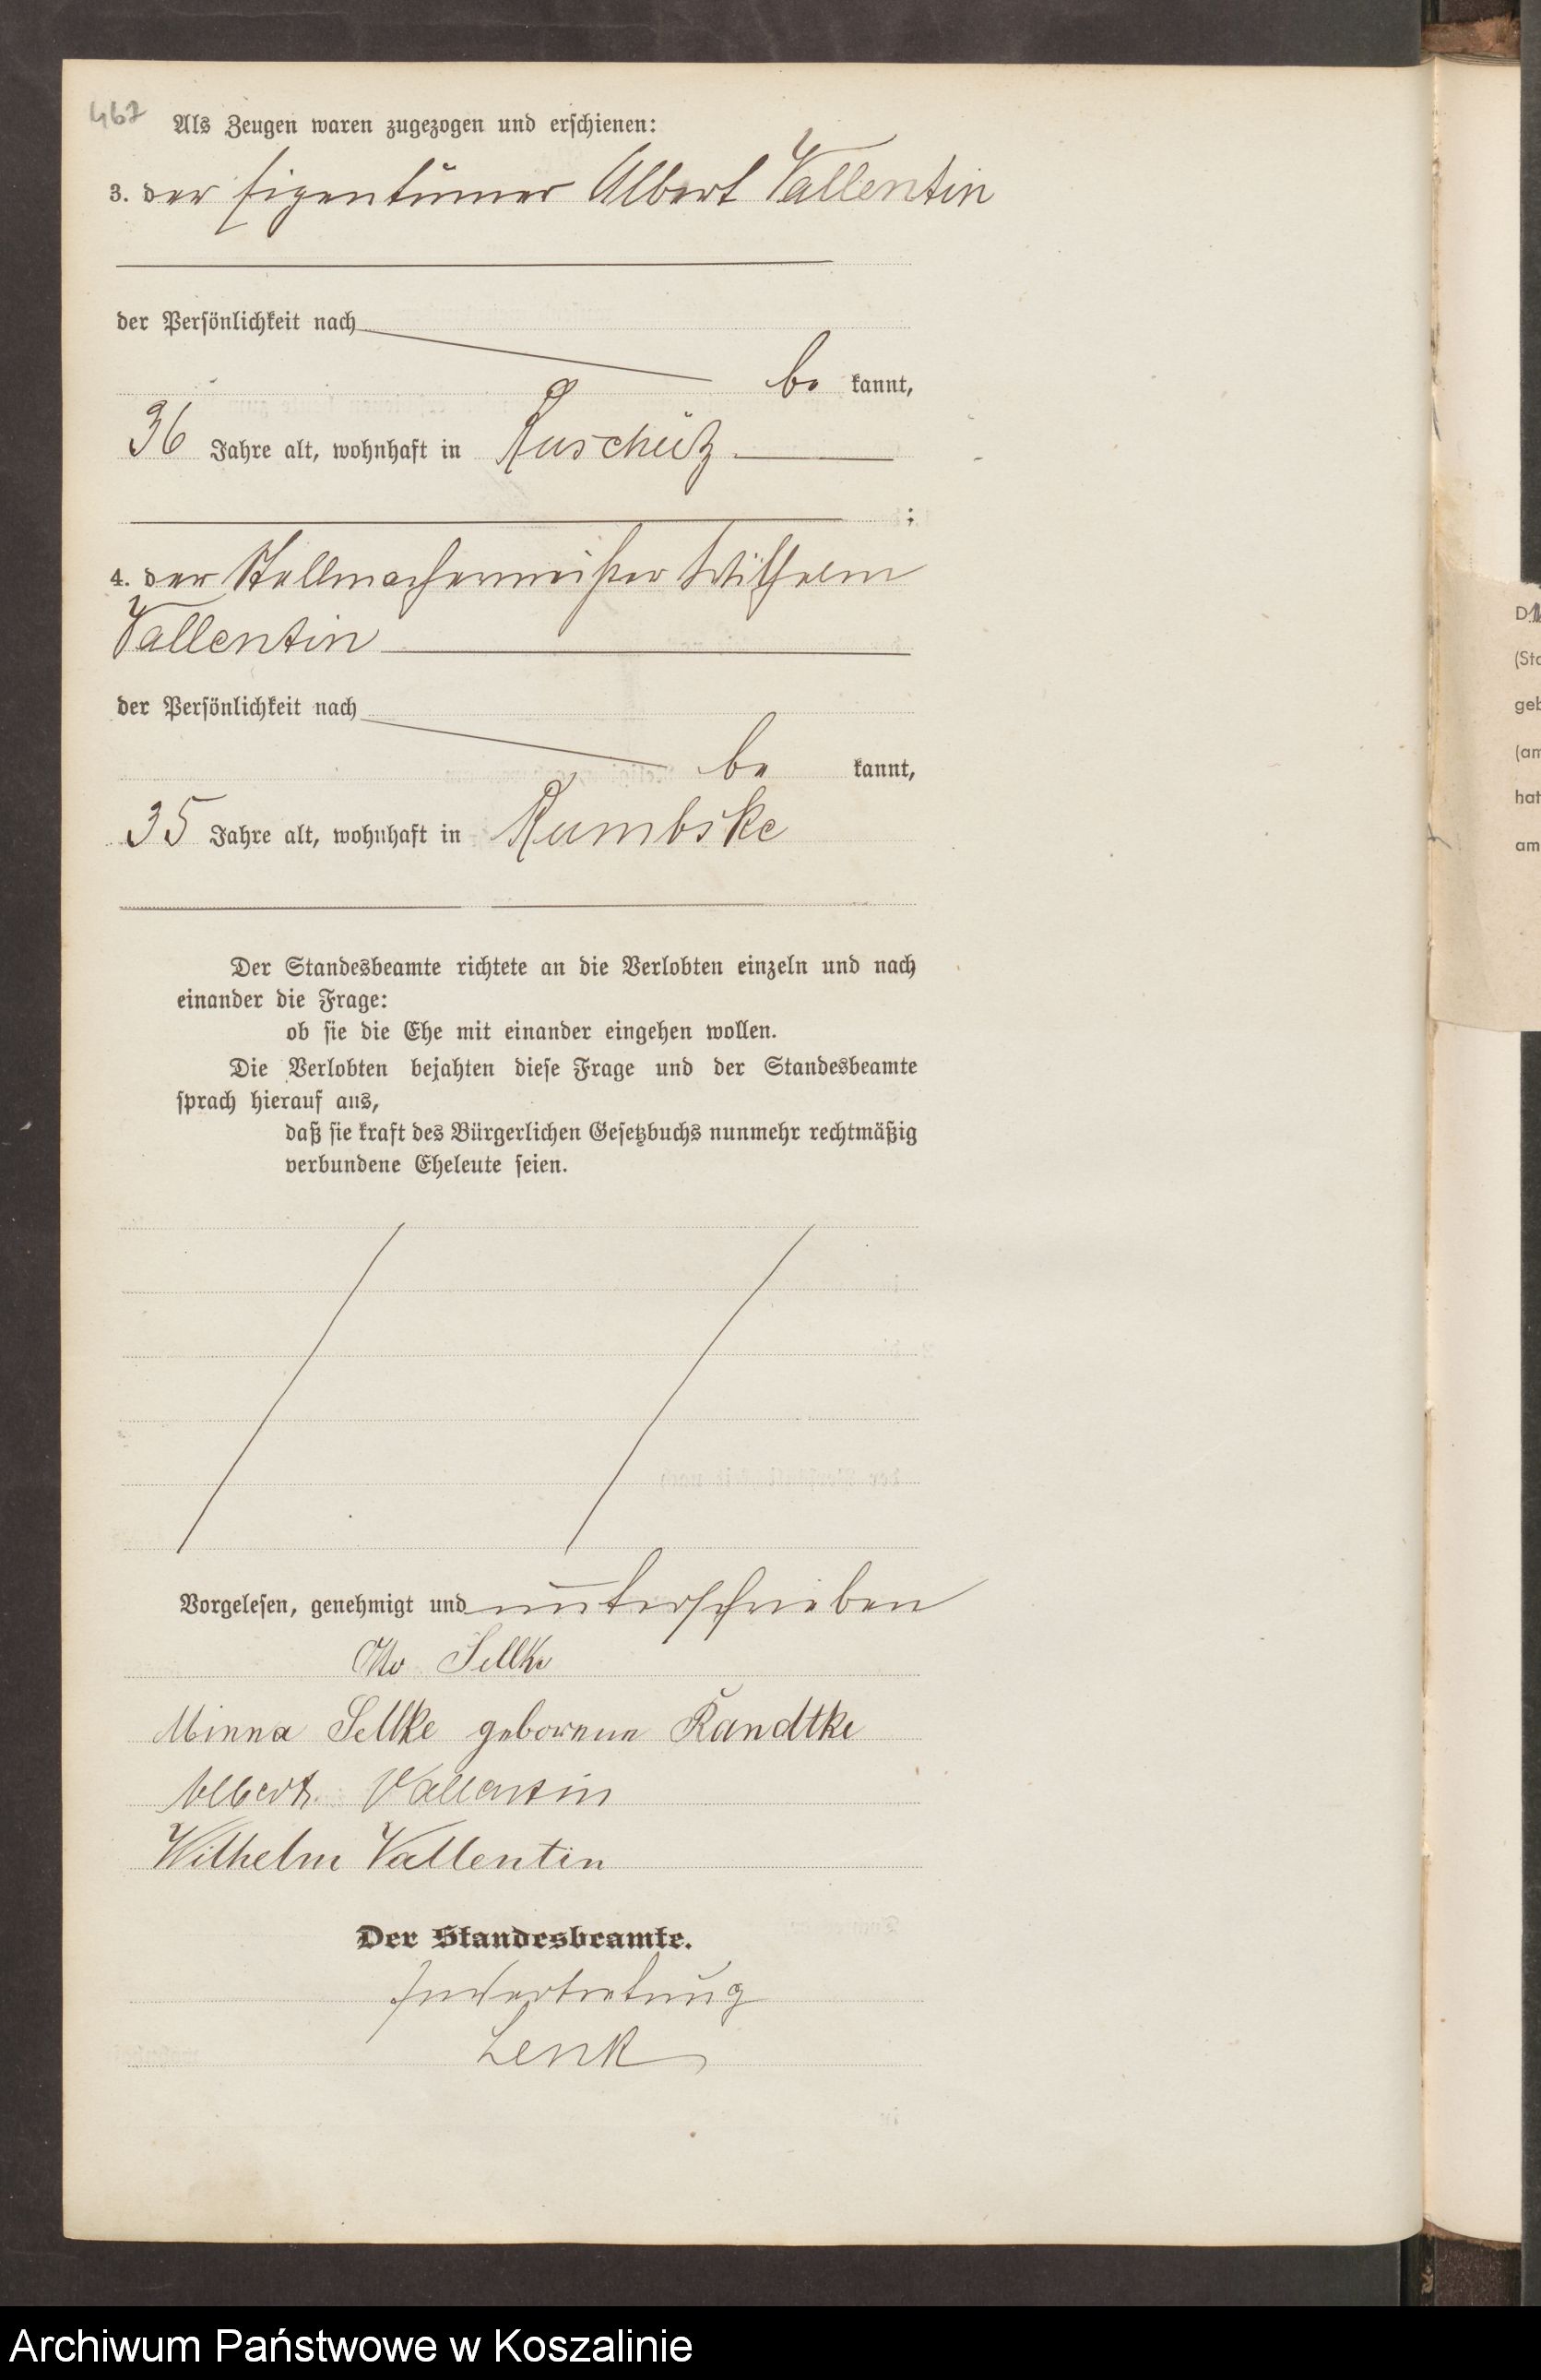 467
Als Zeugen waren zugezogen und erschienen:
3. der Eigentümer Albert Vallentin
der Persönlichkeit nach
be kannt,
36 Jahre alt, wohnhaft in Ruschütz
;
4. der Stellmachermeister Wilhelm
Vallentin
der Persönlichkeit nach
be kannt,
35 Jahre alt, wohnhaft in Rumbske
Der Standesbeamte richtete an die Verlobten einzeln und nach
einander die Frage:
ob sie die Ehe mit einander eingehen wollen.
Die Verlobten bejahten diese Frage und der Standesbeamte
sprach hierauf aus,
daß sie kraft des Bürgerlichen Gesetzbuchs nunmehr rechtmäßig
verbundene Eheleute seien.
Vorgelesen, genehmigt und unterschrieben
Otto Sellke
Minna Sellke geborene Randtke
Albert Vallentin
Wilhelm Vallentin
Der Standesbeamte.
In Vertretung
Lenk
(Sto
geb
(am
hat
am
Archiwum Państwowe w Koszalinie